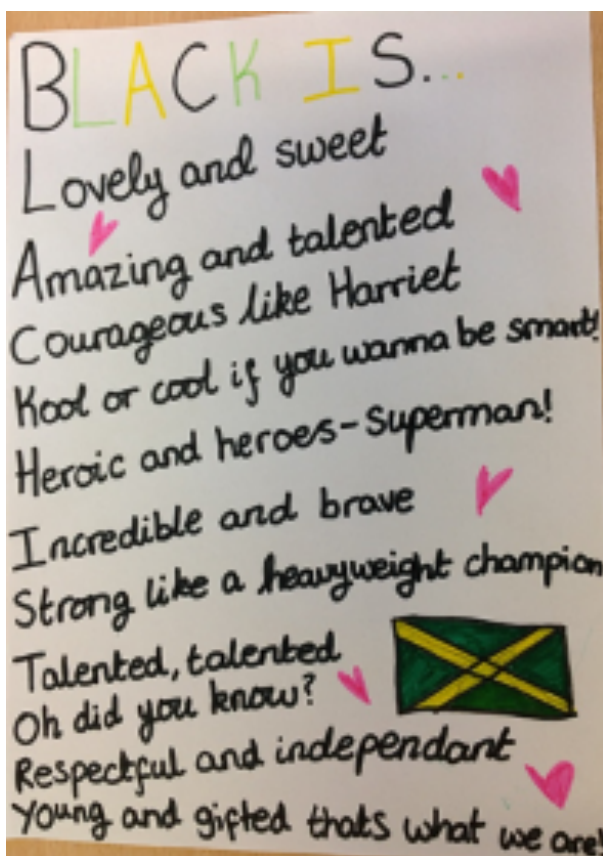 BLACK IS...
Lovely and sweet
Amazing and talented
Courageous like Harriet
Kool or cool if you wanna be smart!
Heroic and heroes-Superman!
Incredible and brave
Strong like a heavyweight champion
Talented, talented
Oh did you know?
Respectful and independant
Young and gifted thats what we are!